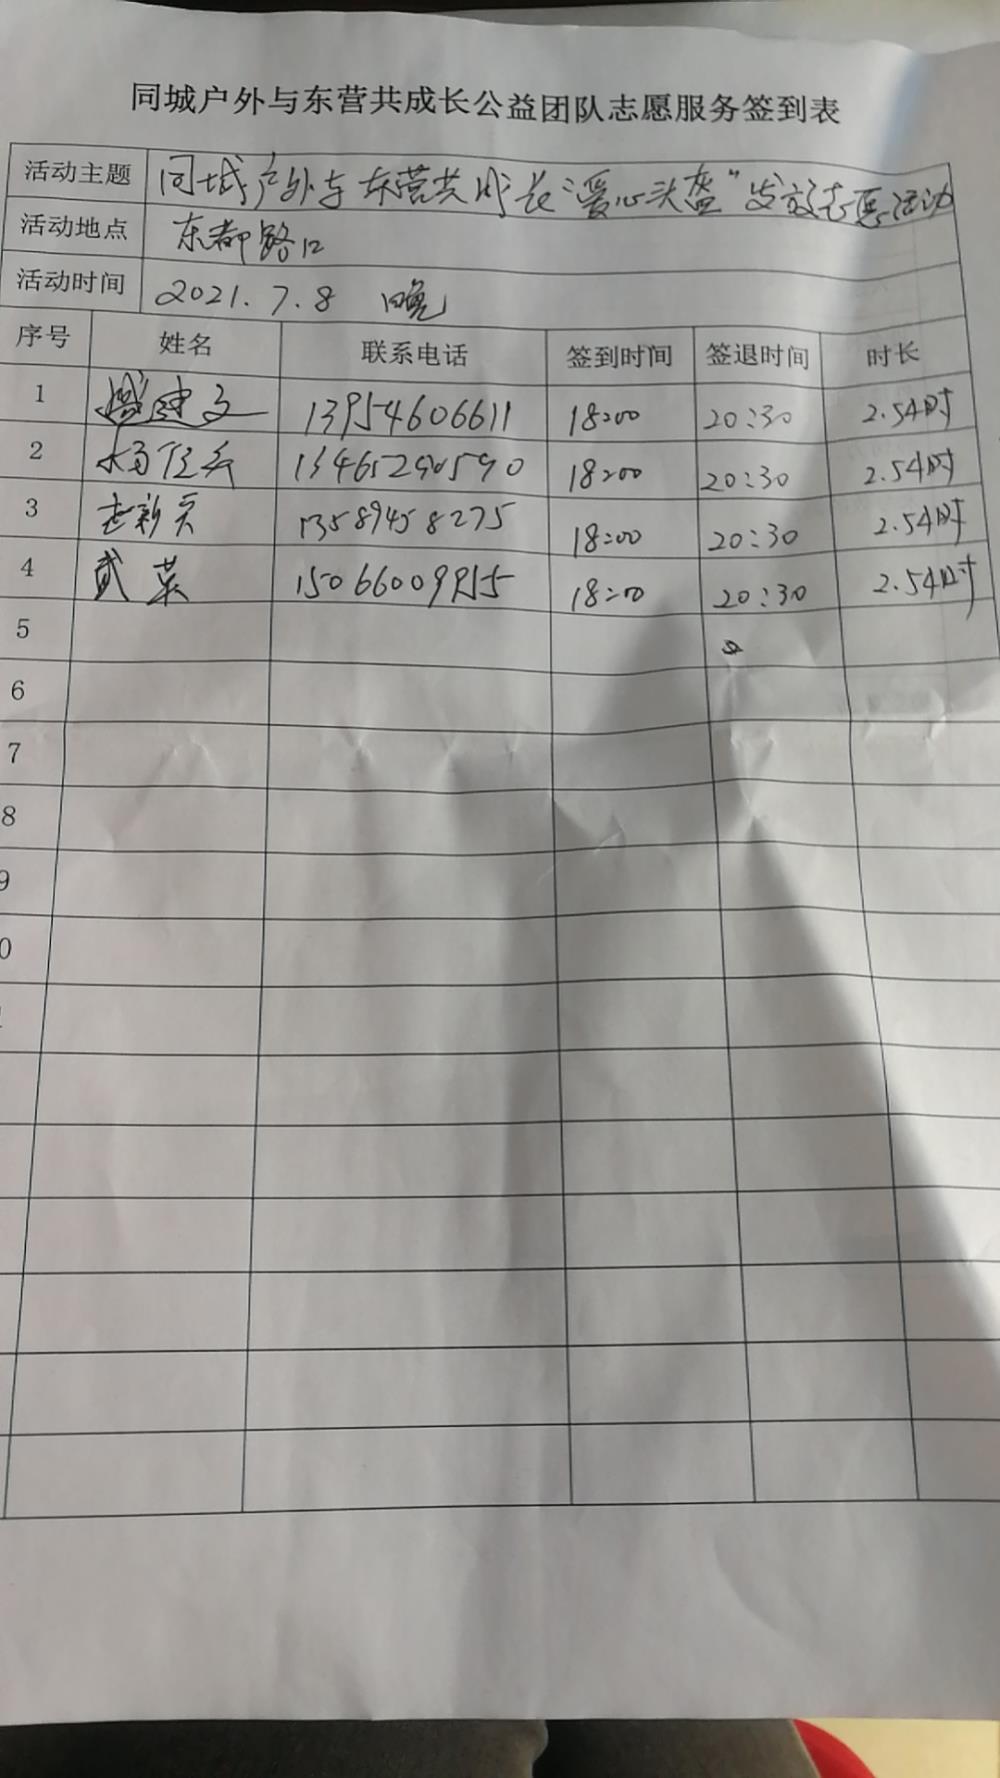 同城户外与东营共成长公益团队志愿服务签到表
活动主题 同城户外与东营共成长“爱心头盔”发放志愿活动
活动地点 东都路口
活动时间 2021.7.8 晚
序号 姓名 联系电话 签到时间 签退时间 时长
1 建文 13954606611 18:00 20:30 2.5小时
2 13465290590 18:00 20:30 2.5小时
3 13589458275 18:00 20:30 2.5小时
4 武英 15066009955 18:00 20:30 2.5小时
5
6
7
8
9
0